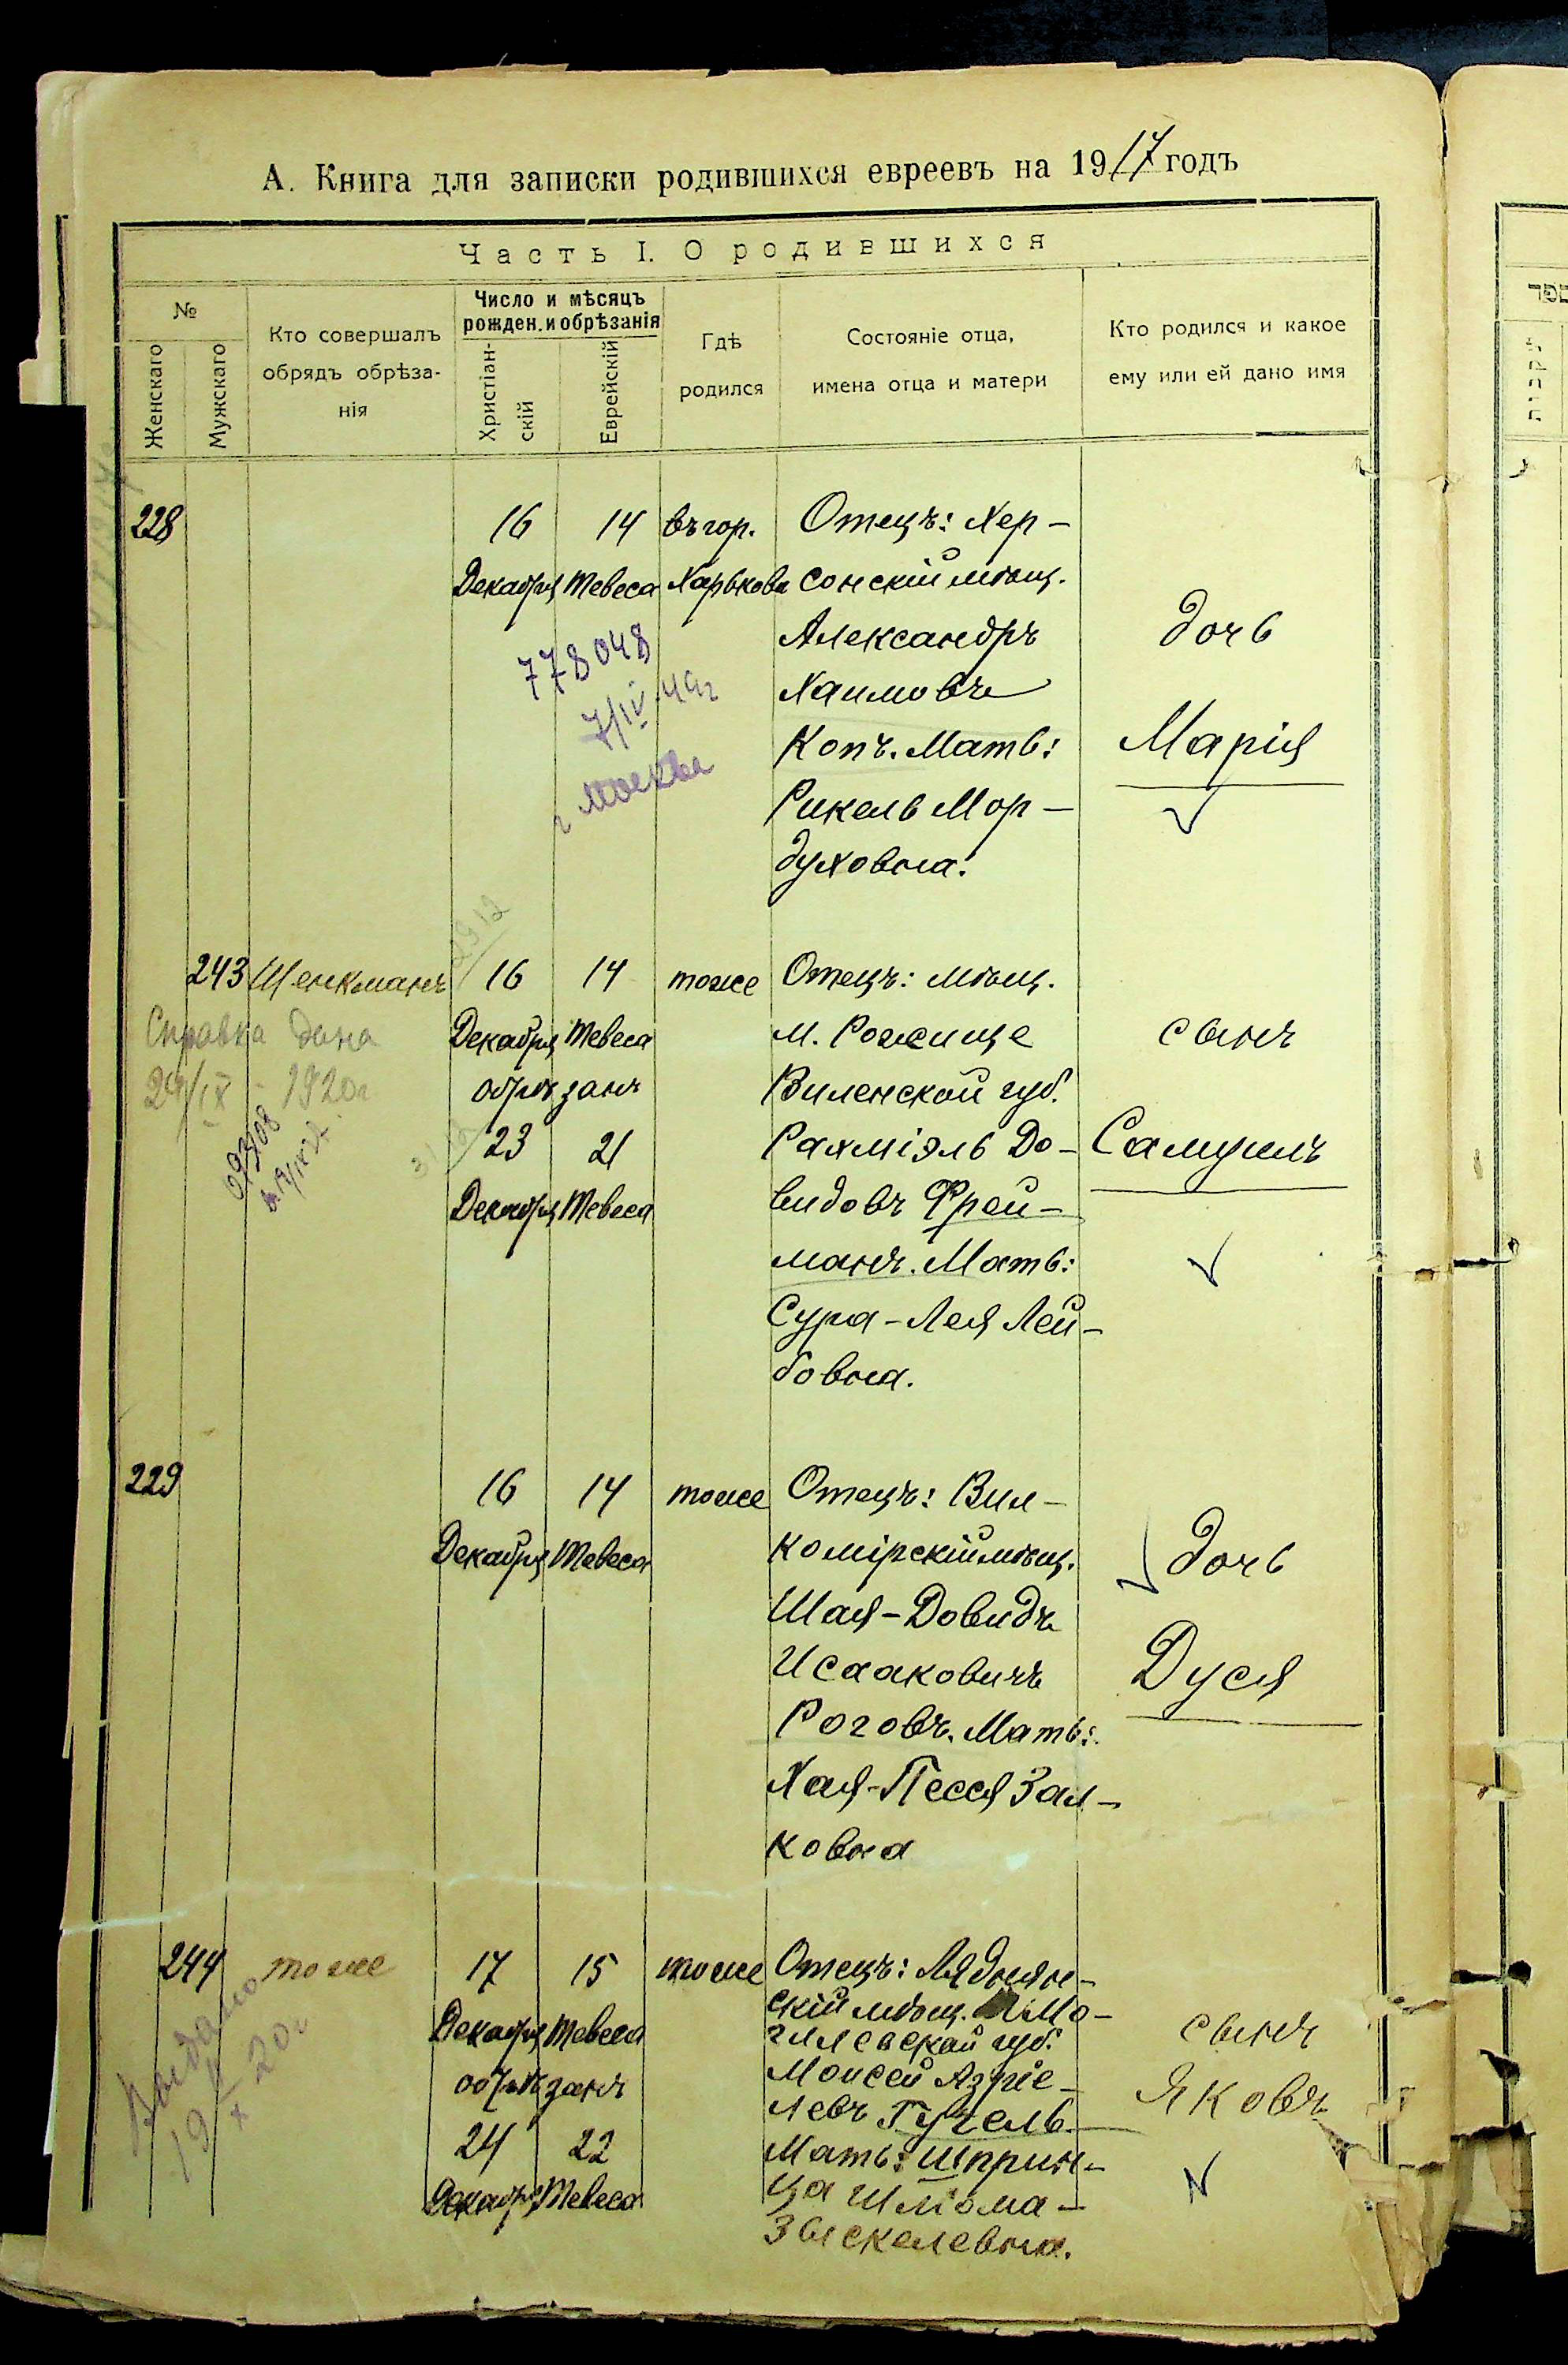 А. Книга для записки родившихся евреевъ на 1917 годъ
Часть I. О родившихся
№
Женскаго
Мужскаго
Кто совершалъ
обрядъ обрѣза-
нія
Число и мѣсяцъ
рожден. и обрѣзанія
Христіан-
скій
Еврейскій
Гдѣ
родился
Состояніе отца,
имена отца и матери
Кто родился и какое
ему или ей дано имя
228
16
Декабря
14
Тевеса
въ гор.
Харькове
Отецъ: Хер-
сонскій мѣщ.
Александръ
Хаимовъ
Копъ. Мать:
Рикель Мор-
духовна.
дочь
Марія
778048
7/IV 49г
г Москва
243
Шенкманъ
Справка дана
29/IX - 1920г
2912
16
Декабря
14
Тевеса
обрѣзанъ
31/12
23
Декабря
21
Тевеса
тоже
Отецъ: мѣщ.
м. Рожище
Виленской губ.
Рахміэль До-
видовъ Фрей-
манъ. Мать:
Сура-Лея Лей-
бовна.
сынъ
Самуилъ
229
16
Декабря
14
Тевеса
тоже
Отецъ: Вил-
комірскій мѣщ.
Шая-Довидъ
Исааковичъ
Роговъ. Мать:
Хая-Песся Зал-
ковна
дочь
Дуся
244
тоже
Выдано
19/X 20г
17
Декабря
15
Тевеса
обрѣзанъ
24
Декабря
22
Тевеса
тоже
Отецъ: Ляднян-
скій мѣщ. Мо-
гилевской губ.
Моисей Азріе-
левъ Гучель.
Мать: Шприн-
ца Шліома-
Зыскелевна.
сынъ
Яковъ